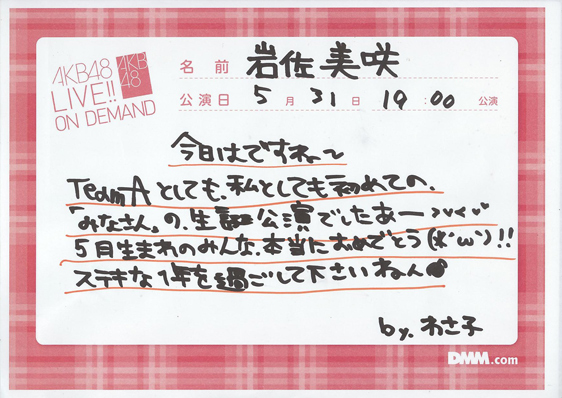 AKB48
LIVE!!
ON DEMAND
AKB
48
名前 岩佐美咲
公演日 5月31日 19:00 公演
今日はですねー〜
TeamAとしても、私としても初めての、
「みなさん」の、生誕公演でしたあー>∨<♡
5月生まれのみんな、本当におめでとう(*´ω`)!!
ステキな1年を過ごして下さいねん
by. わさ子
DMM.com